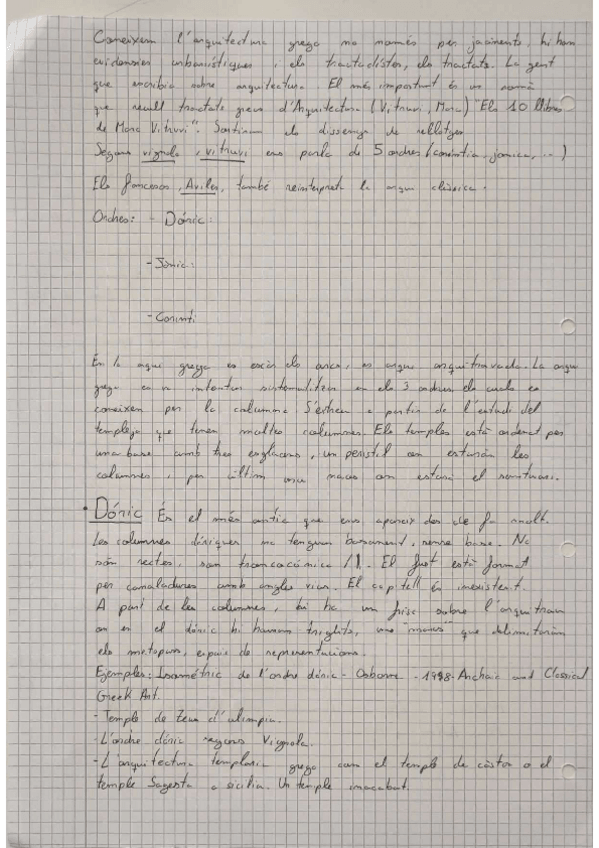 Coneixem l'arquitectura grega no només per jaciments, hi han
evidències urbanístiques, els tractadistes, els tractats. La gent
que escribia sobre arquitectura. El més important és un romà
que recull tractats grecs d'Arquitectura (Vitruvi, Marc) "Els 10 llibres
de Marc Vitruvi". Sortiran els dissenys de rellotges
Segons vignola, vitruvi ens parla de 5 ordres (corintia, jonica, ...)
Els francesos, Aviler, també reinterpreta la arqu clàssica.
Ordres: - Dóric:
- Jònic:
- Corinti
En la arqu grega es exclu els arcs, es arqu arquitravada. La arqu
grega es va intentar sistematitzar en els 3 ordres els quals es
coneixen per la columna. S'extreu a partir de l'estudi del
temples que tenen moltes columnes. Els temples està ordenat per
una base amb tres esglaons, un peristil on estaran les
columnes i per últim una naos on estarà el santuari.
Dóric És el més antic que ens apareix des de fa molt.
Les columnes dòriques no tenguen basament, sense base. No
són rectes, son troncocònica /\. El fust està format
per canaladures amb angles vius. El capitell és inexistent.
A part de les columnes, hi ha un fris sobre l'arquitrau
on en el dòric hi hauran triglifs, unes que delimitaran
els metopes, espais de representacions.
Ejemples: Isomètric de l'ordre dóric - Osborne - 1998. Archaic and Classical
Greek Art.
- Temple de Zeus d'olimpia.
- L'ordre dóric segons Vignola.
- L'arquitectura templaria grega com el temple de càstor o el
temple Segesta a sicilia. Un temple inacabat.